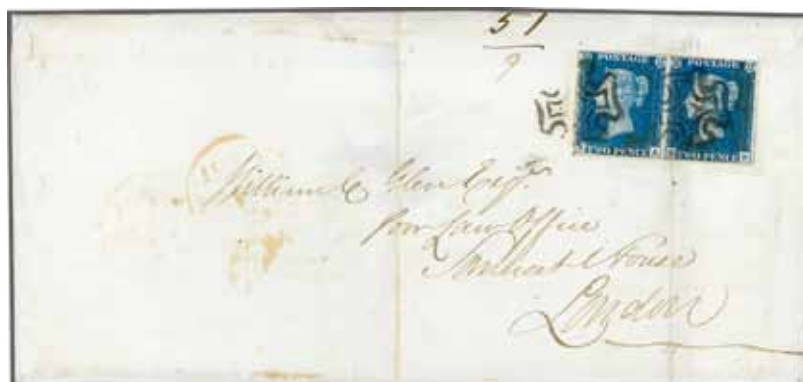 51
9
POSTAGE POSTAGE
TWO PENCE TWO PENCE
William C Glen Esqr.
Poor Law Office
Somerset House
London